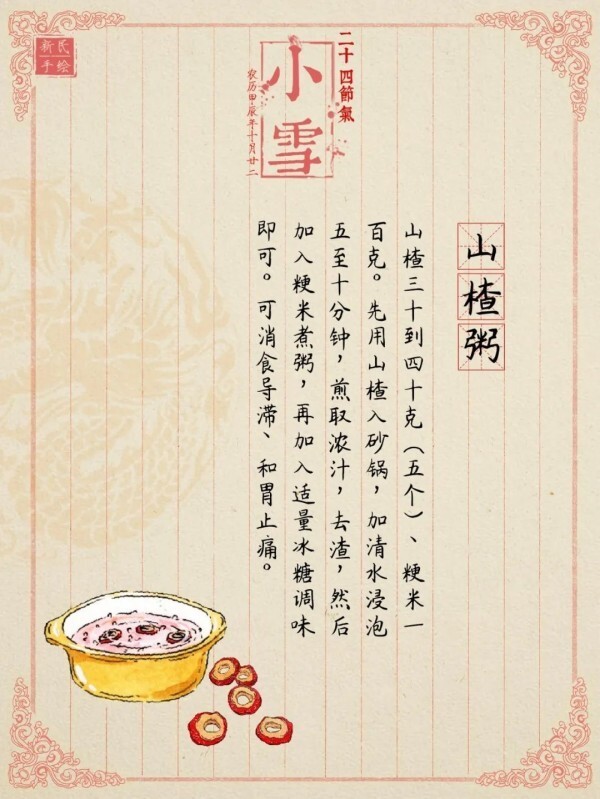 新民
手绘
二十四節氣
小雪
农历甲辰年十月廿二
山楂粥
山楂三十到四十克（五个）、粳米一
百克。先用山楂入砂锅，加清水浸泡
五至十分钟，煎取浓汁，去渣，然后
加入粳米煮粥，再加入适量冰糖调味
即可。可消食导滞、和胃止痛。